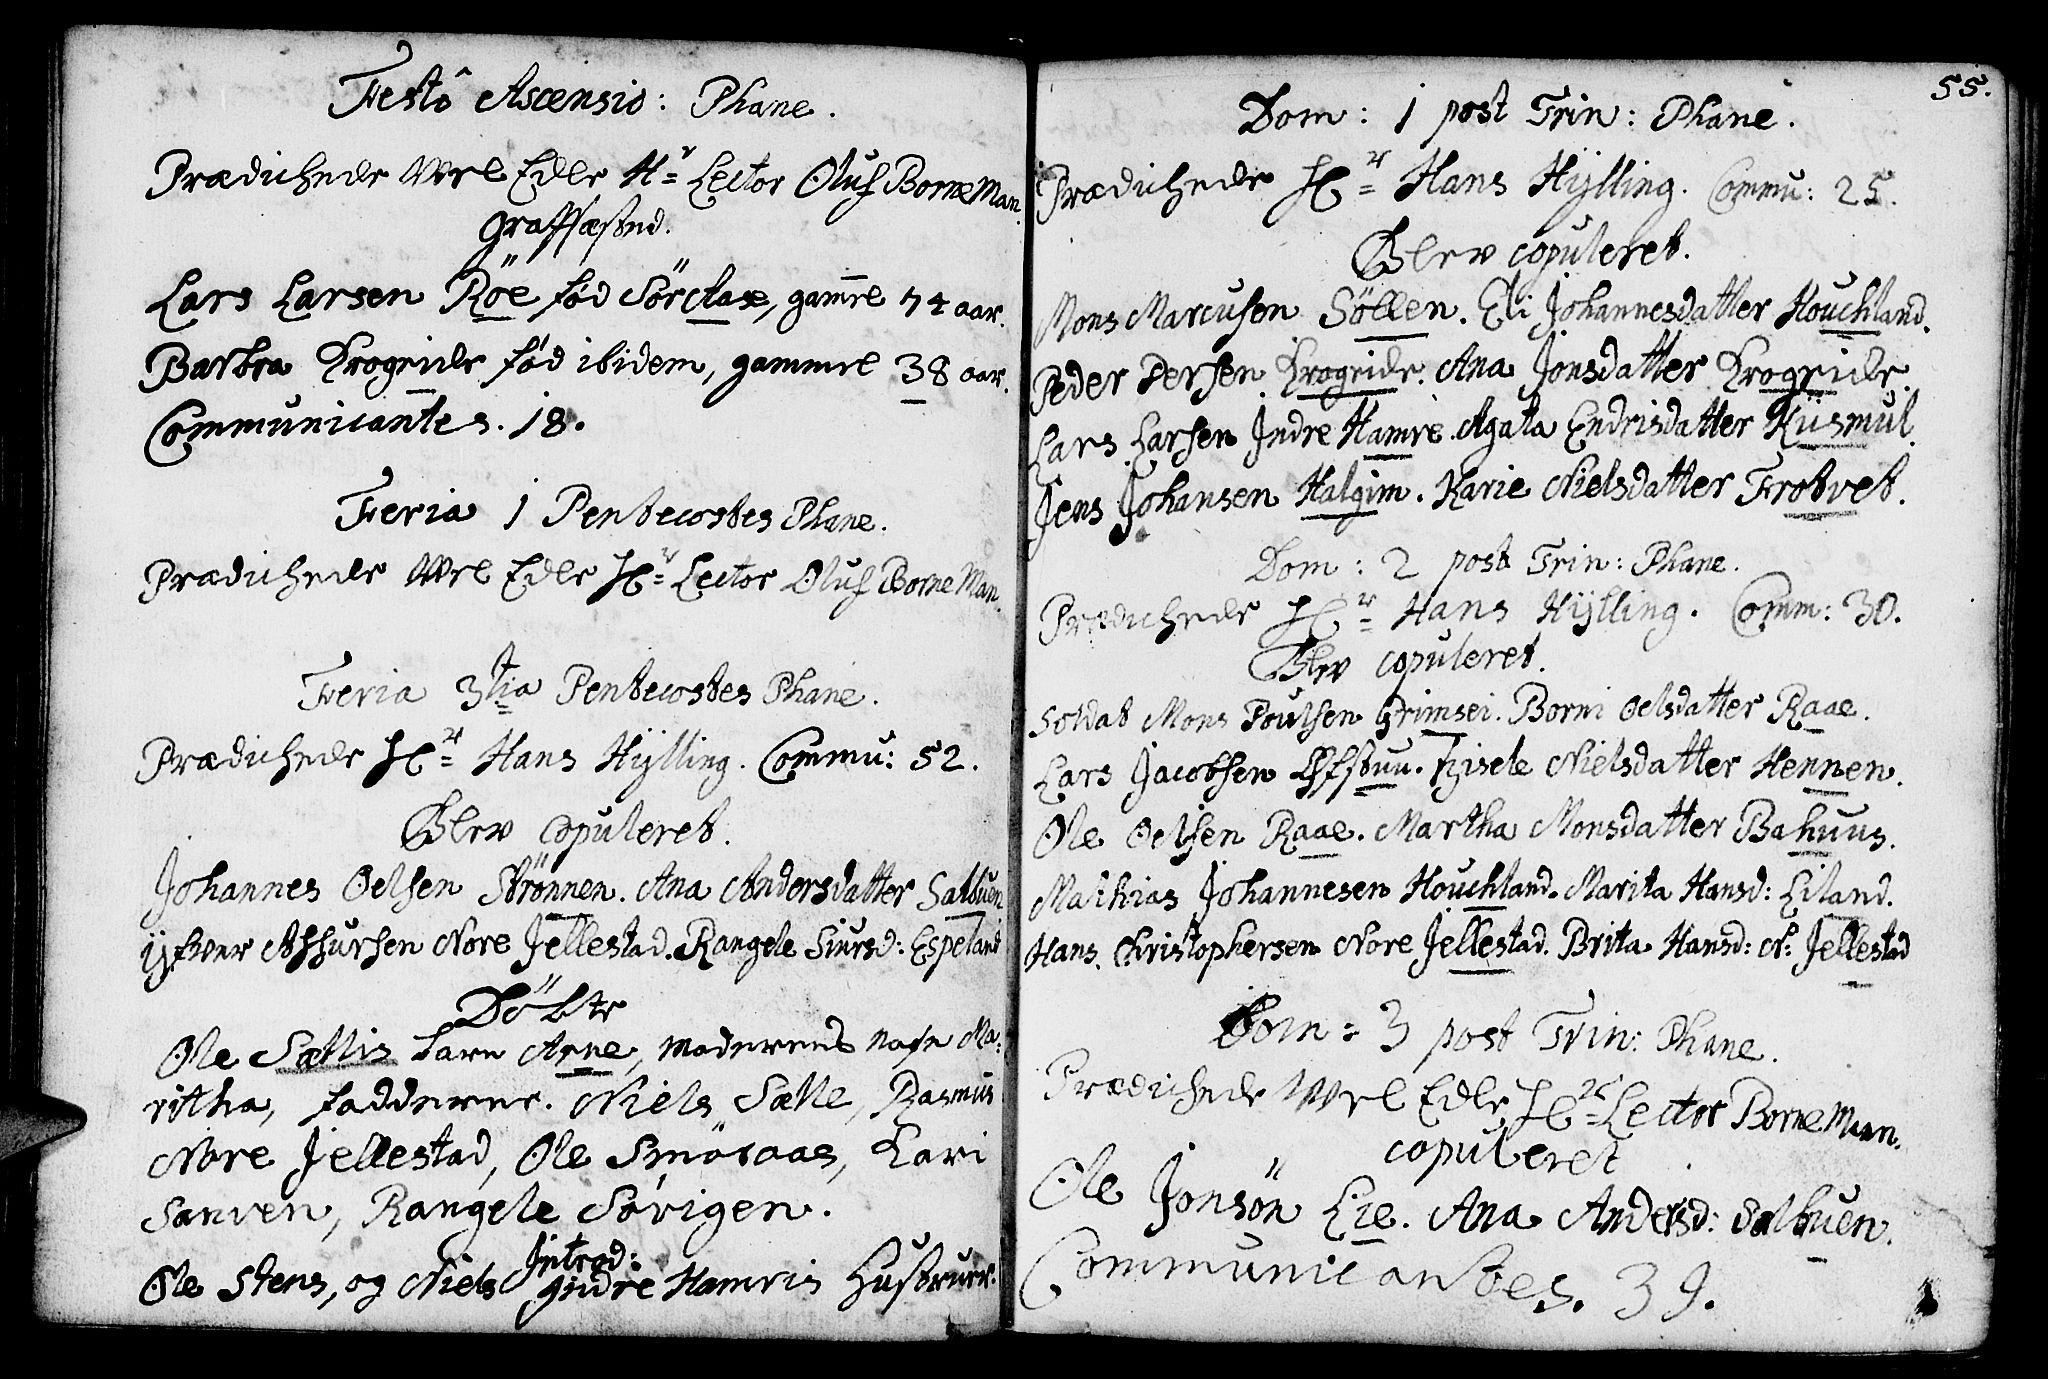 Festô Ascensio: Phane.
Prædichede Wel Edle Hr= Lector Oluf BorneMan.
Graffæsted.
Lars Larsen Röe fød Sörctase, gam̅el 74 aar.
Barbra Krogeide fød ibidem, gammel 38 aar.
Communicantes. 18.
Feria 1 Pentecostes Phane.
Prædichede Wel Edle Hr= Lector Oluf BorneMan.
Feria 3tia Pentecostes Phane.
Prædichede Hr= Hans Hÿlling. Commu: 52.
Blev Copuleret.
Johannes Oelsen Strönnen. Ana Andersdatter Salbuen
Ifver Assursen Nore Jellestad. Rangele Siursd: Espeland
Döbte
Ole Sættis barn Arne, Moderens Nafn Ma:
ritha, fadderne. Niels Sætte, Rasmus
Nore Jellestad, Ole Smöraas, Kari
Sanven, Rangele Sørigen.
Introd:
Ole Stens, og Niels Jndre Hamris Hustruer.
55.
Dom: 1 post Trin: Phane.
Prædichede Hr= Hans Hÿlling. Commu: 25.
Blev copuleret.
Mons Marcusen Söllen. Eli Johannesdatter Houchland.
Peder Persen Krogeide. Ana Jonsdatter Krogeide.
Lars Larsen Jndre Hamre. Agata Endrisdatter Küsmul.
Jens Johansen Halgim. Karie Nielsdatter Trotvet.
Dom: 2 post Trin: Phane.
Prædichede Hr= Hans Hÿlling. Comm: 30.
Blev copuleret.
Soldat Mons Poulsen Grimsei. Borni Oelsdatter Raae.
Lars Jacobsen Øfstuu. Gisele Nielsdatter Hennen.
Ole Oelsen Raae. Martha Monsdatter Bahuus.
Mathias Johannesen Houchland. Marita Hansd: Liland.
Hans Christophersen Nore Jellestad. Brita Hansd: No: Jellestad
Dom: 3 post Trin: Phane.
Prædichede Wel Edle Hr= Lector BorneMan.
copuleret
Ole Jonsön Lie. Ana Andersd: Salbuen.
Communicantes. 39.